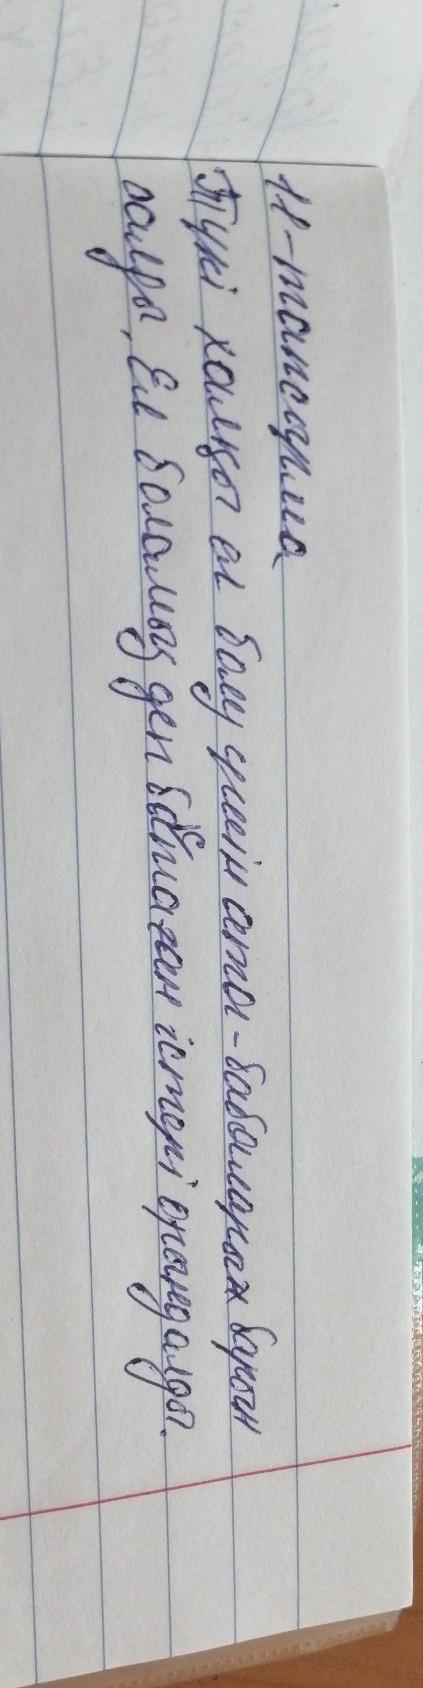 11-тапсырма
Түкі халқы ел болу үшін ата-бабалары барын
салды, Ел боламыз деп бастаған істері орындалды.